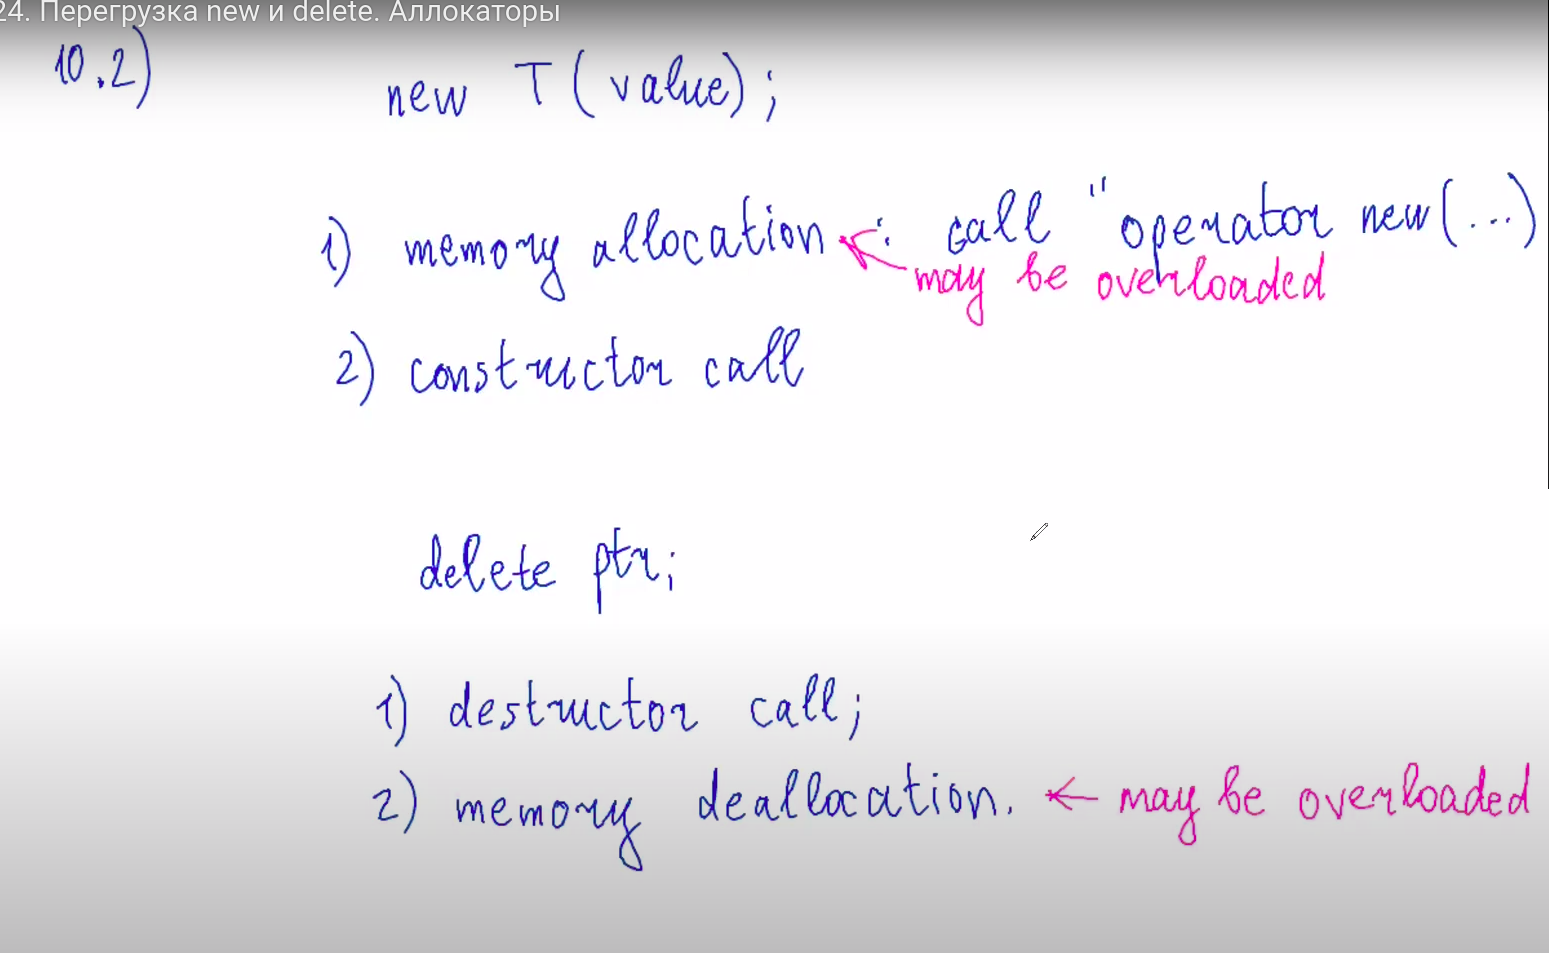 24. Перегрузка new и delete. Аллокаторы
10.2)
new T(value);
1) memory allocation : call "operator new(...)
may be overloaded
2) constructor call
delete ptr;
1) destructor call;
2) memory deallocation. ← may be overloaded